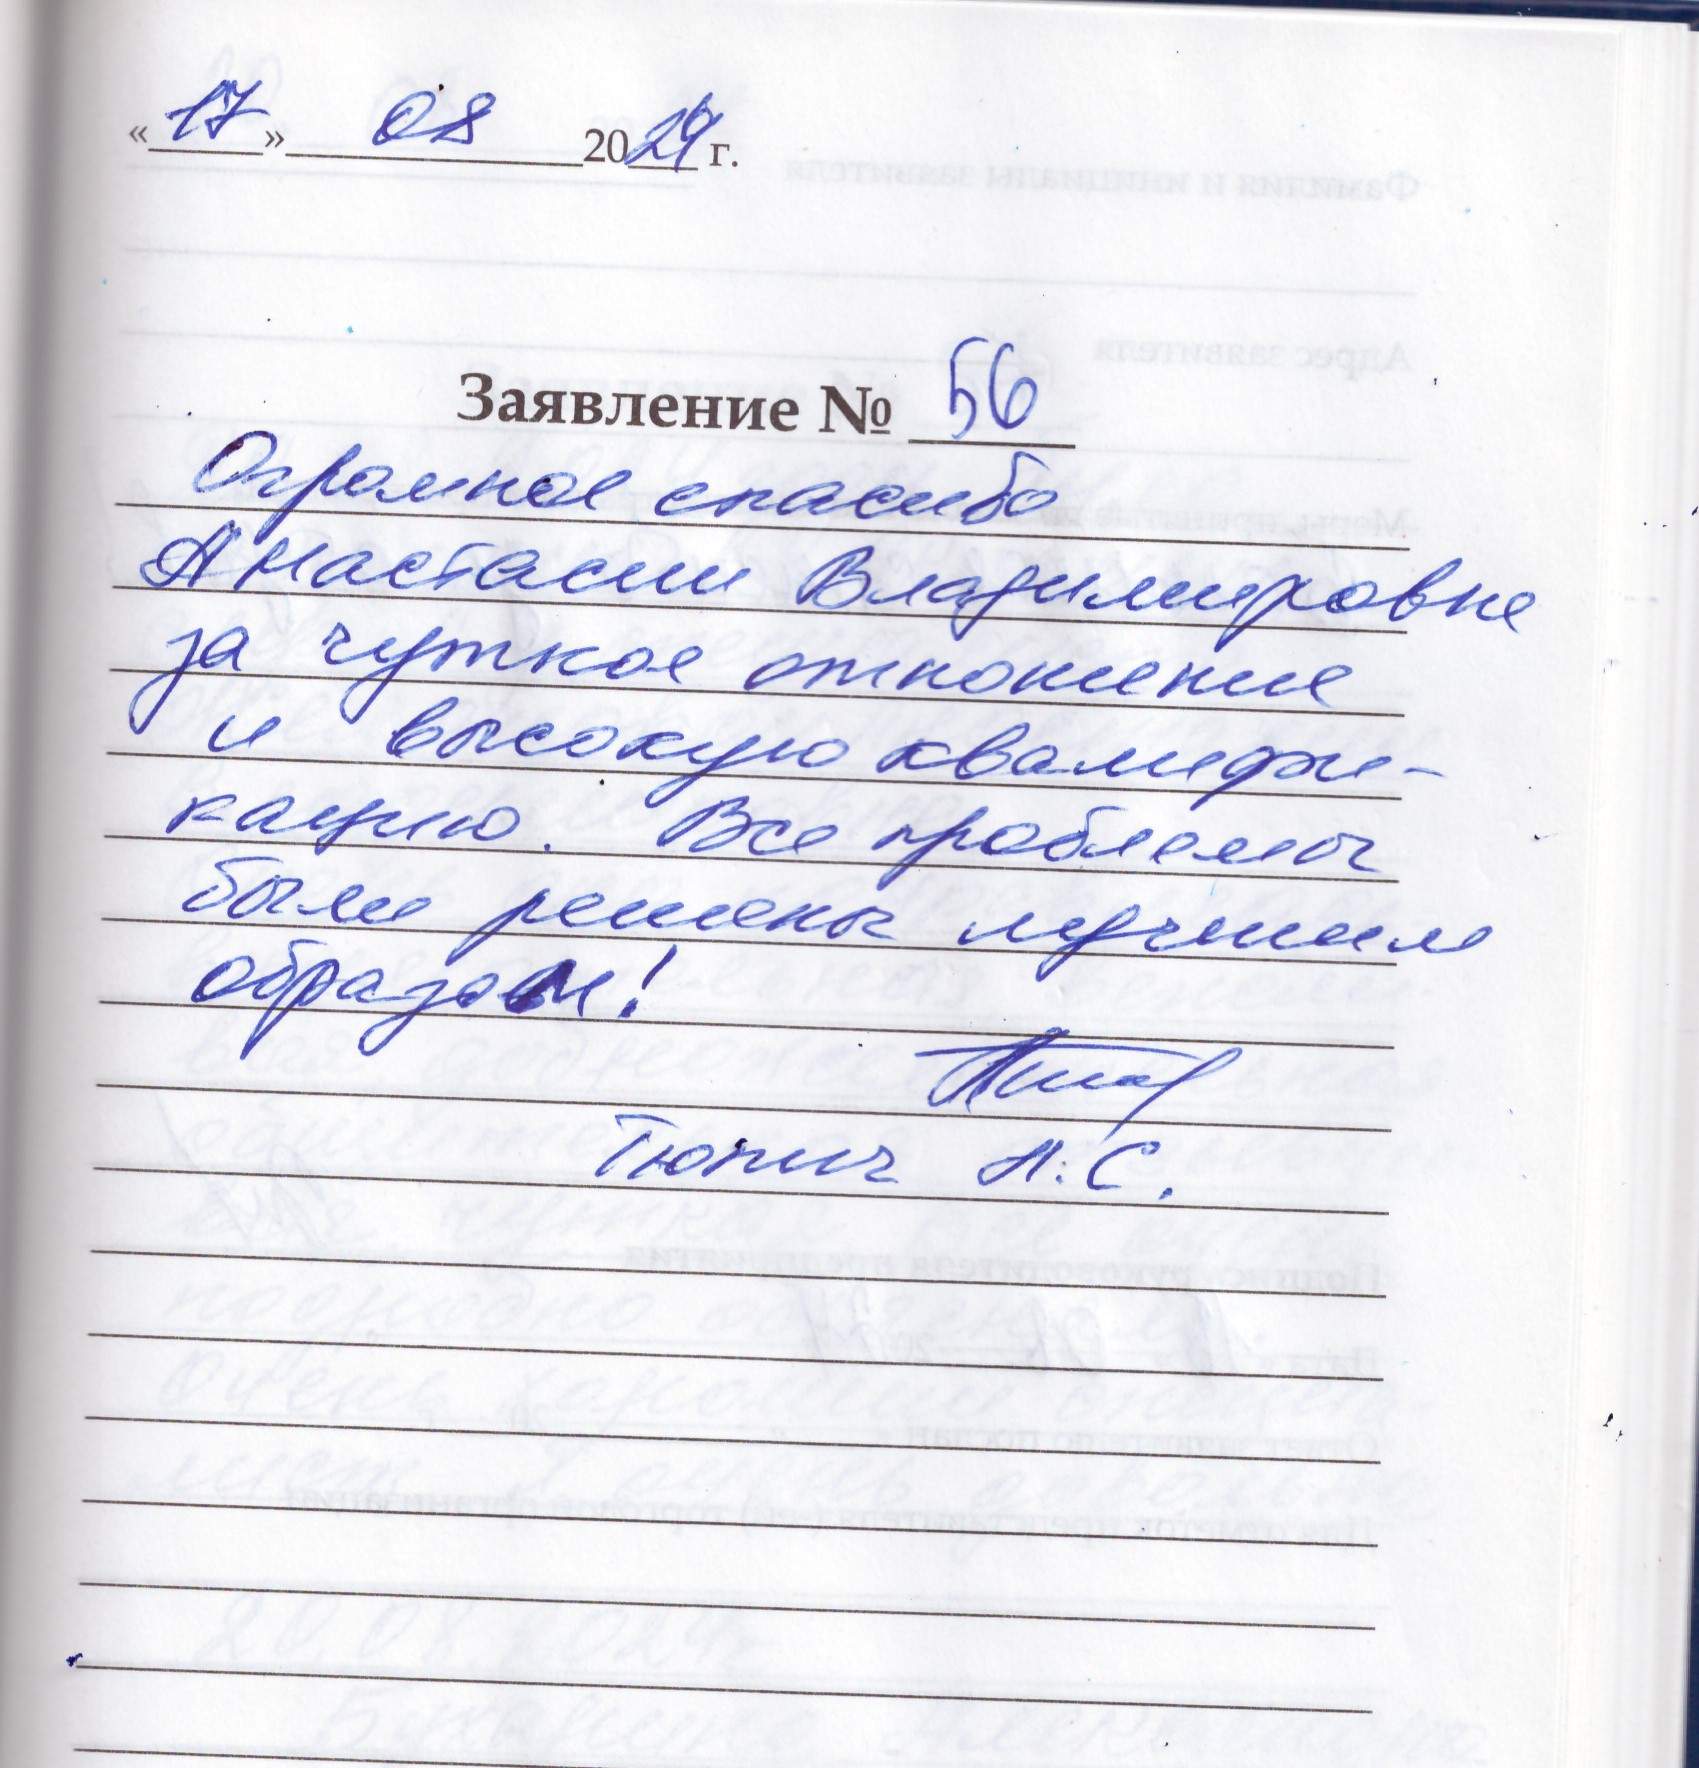 «17» 08 2024 г.
Заявление № 56
Огромное спасибо
Анастасии Владимировне
за чуткое отношение
и высокую квалифи-
кацию. Все проблемы
были решены лучшим
образом!
Тюпич А.С.